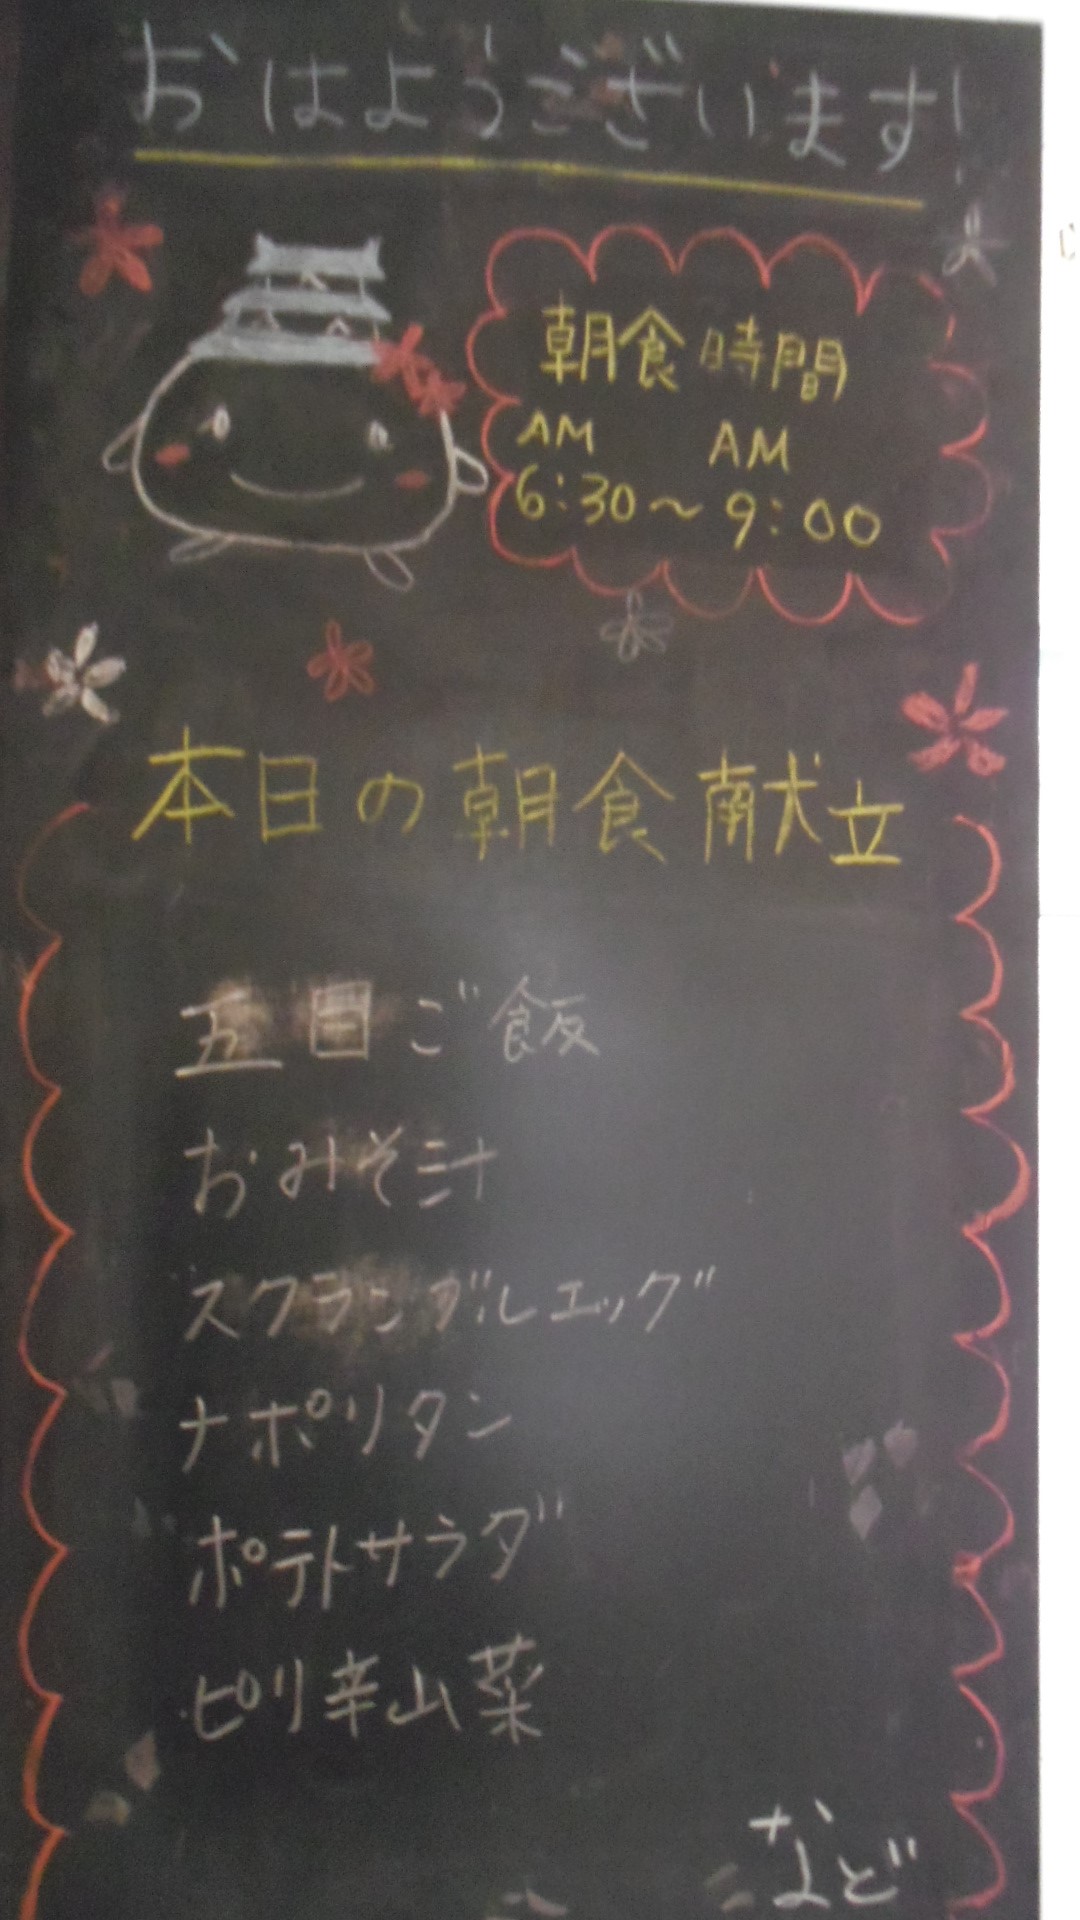 おはようございます!
朝食時間
AM AM
6:30〜9:00
本日の朝食献立
五目ご飯
おみそ汁
スクランブルエッグ
ナポリタン
ポテトサラダ
ピリ辛山菜
など